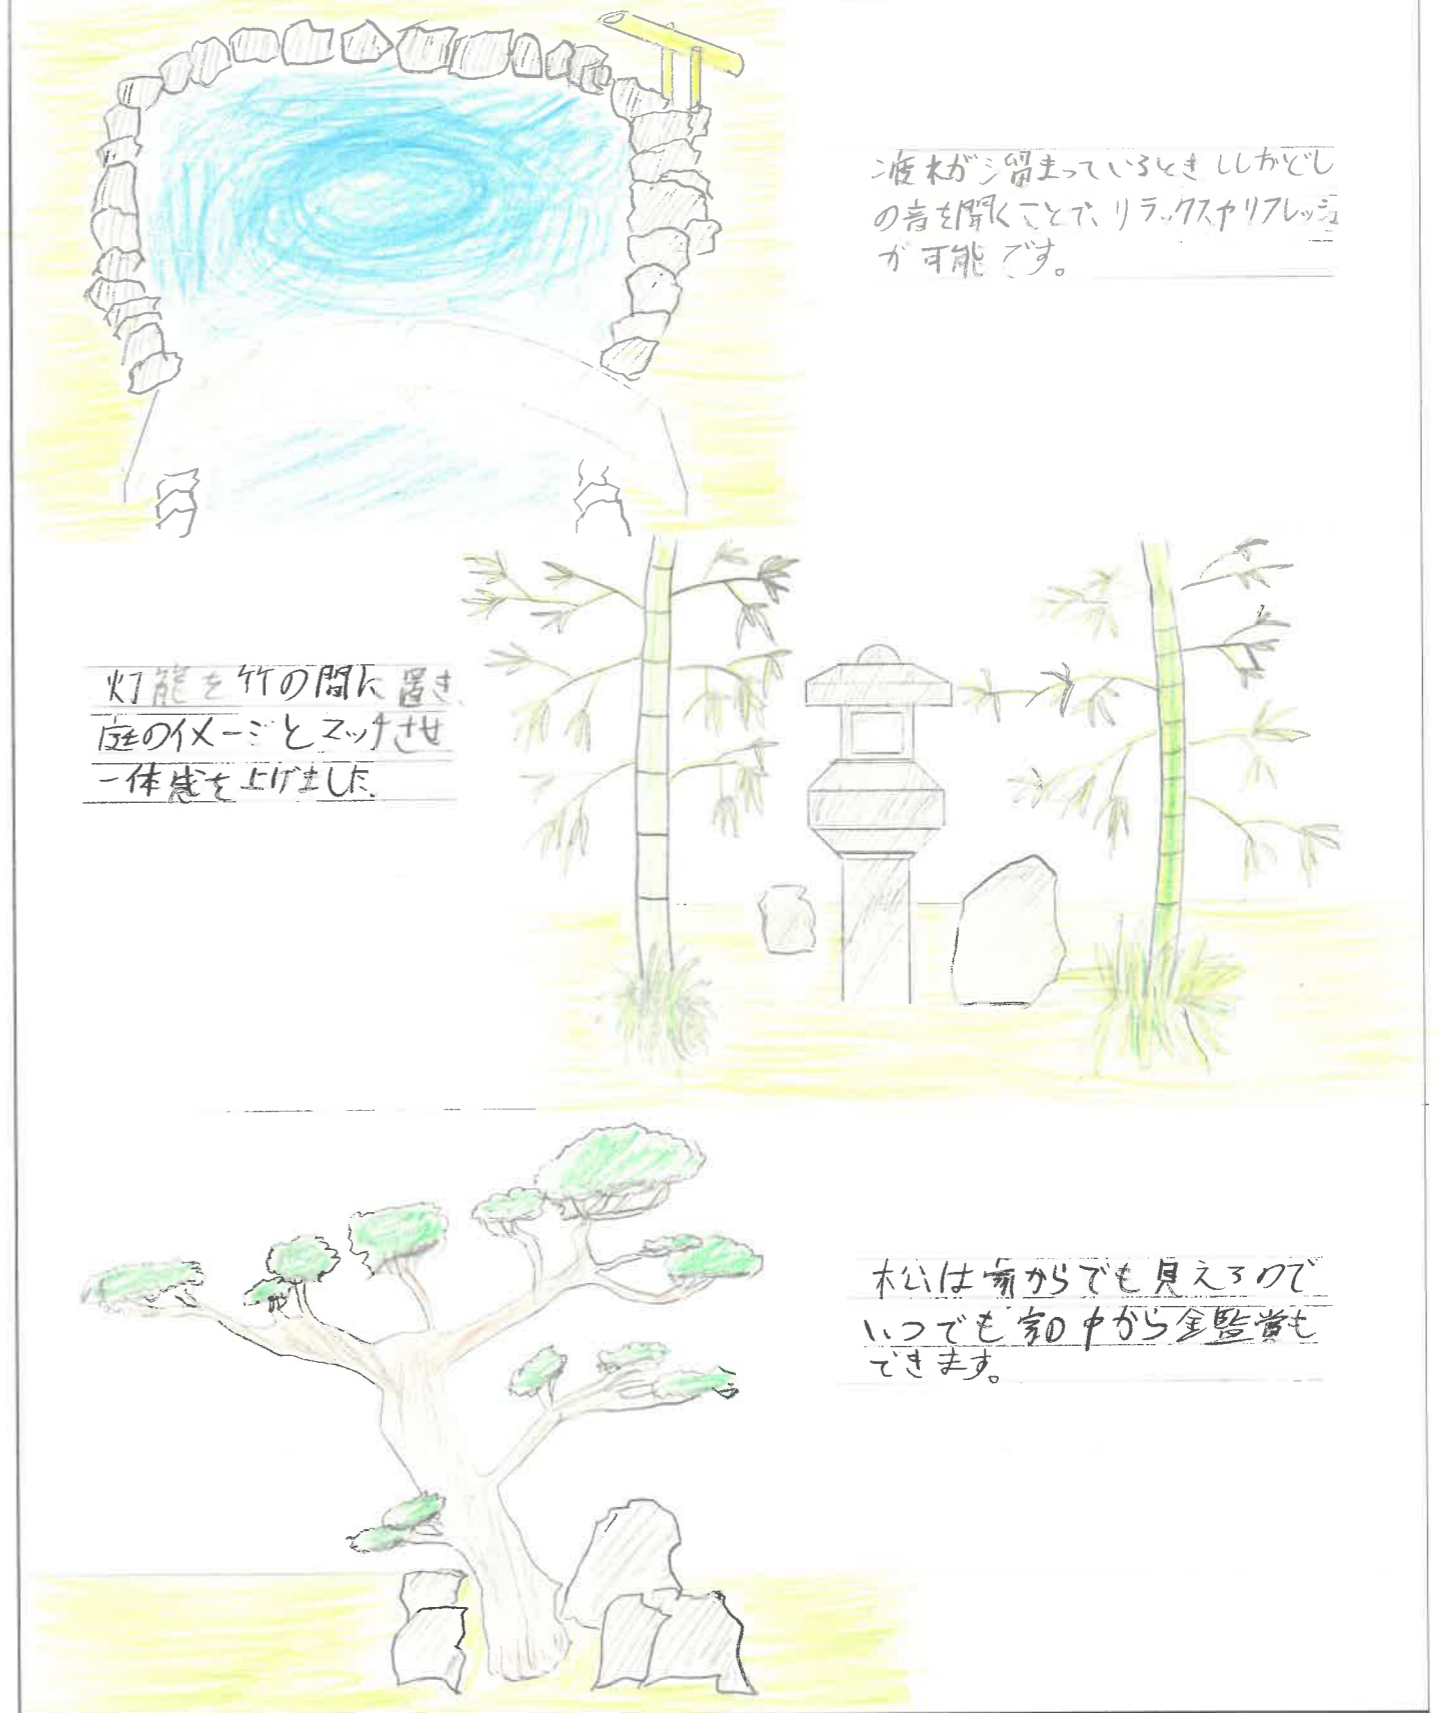 疲れが溜まっているとき ししおどし
の音を聞くことで、リラックスやリフレッシュ
が可能です。
灯籠を竹の間に置き、
庭のイメージとマッチさせ
一体感を上げました。
松は家からでも見えるので
いつでも家の中から鑑賞も
できます。